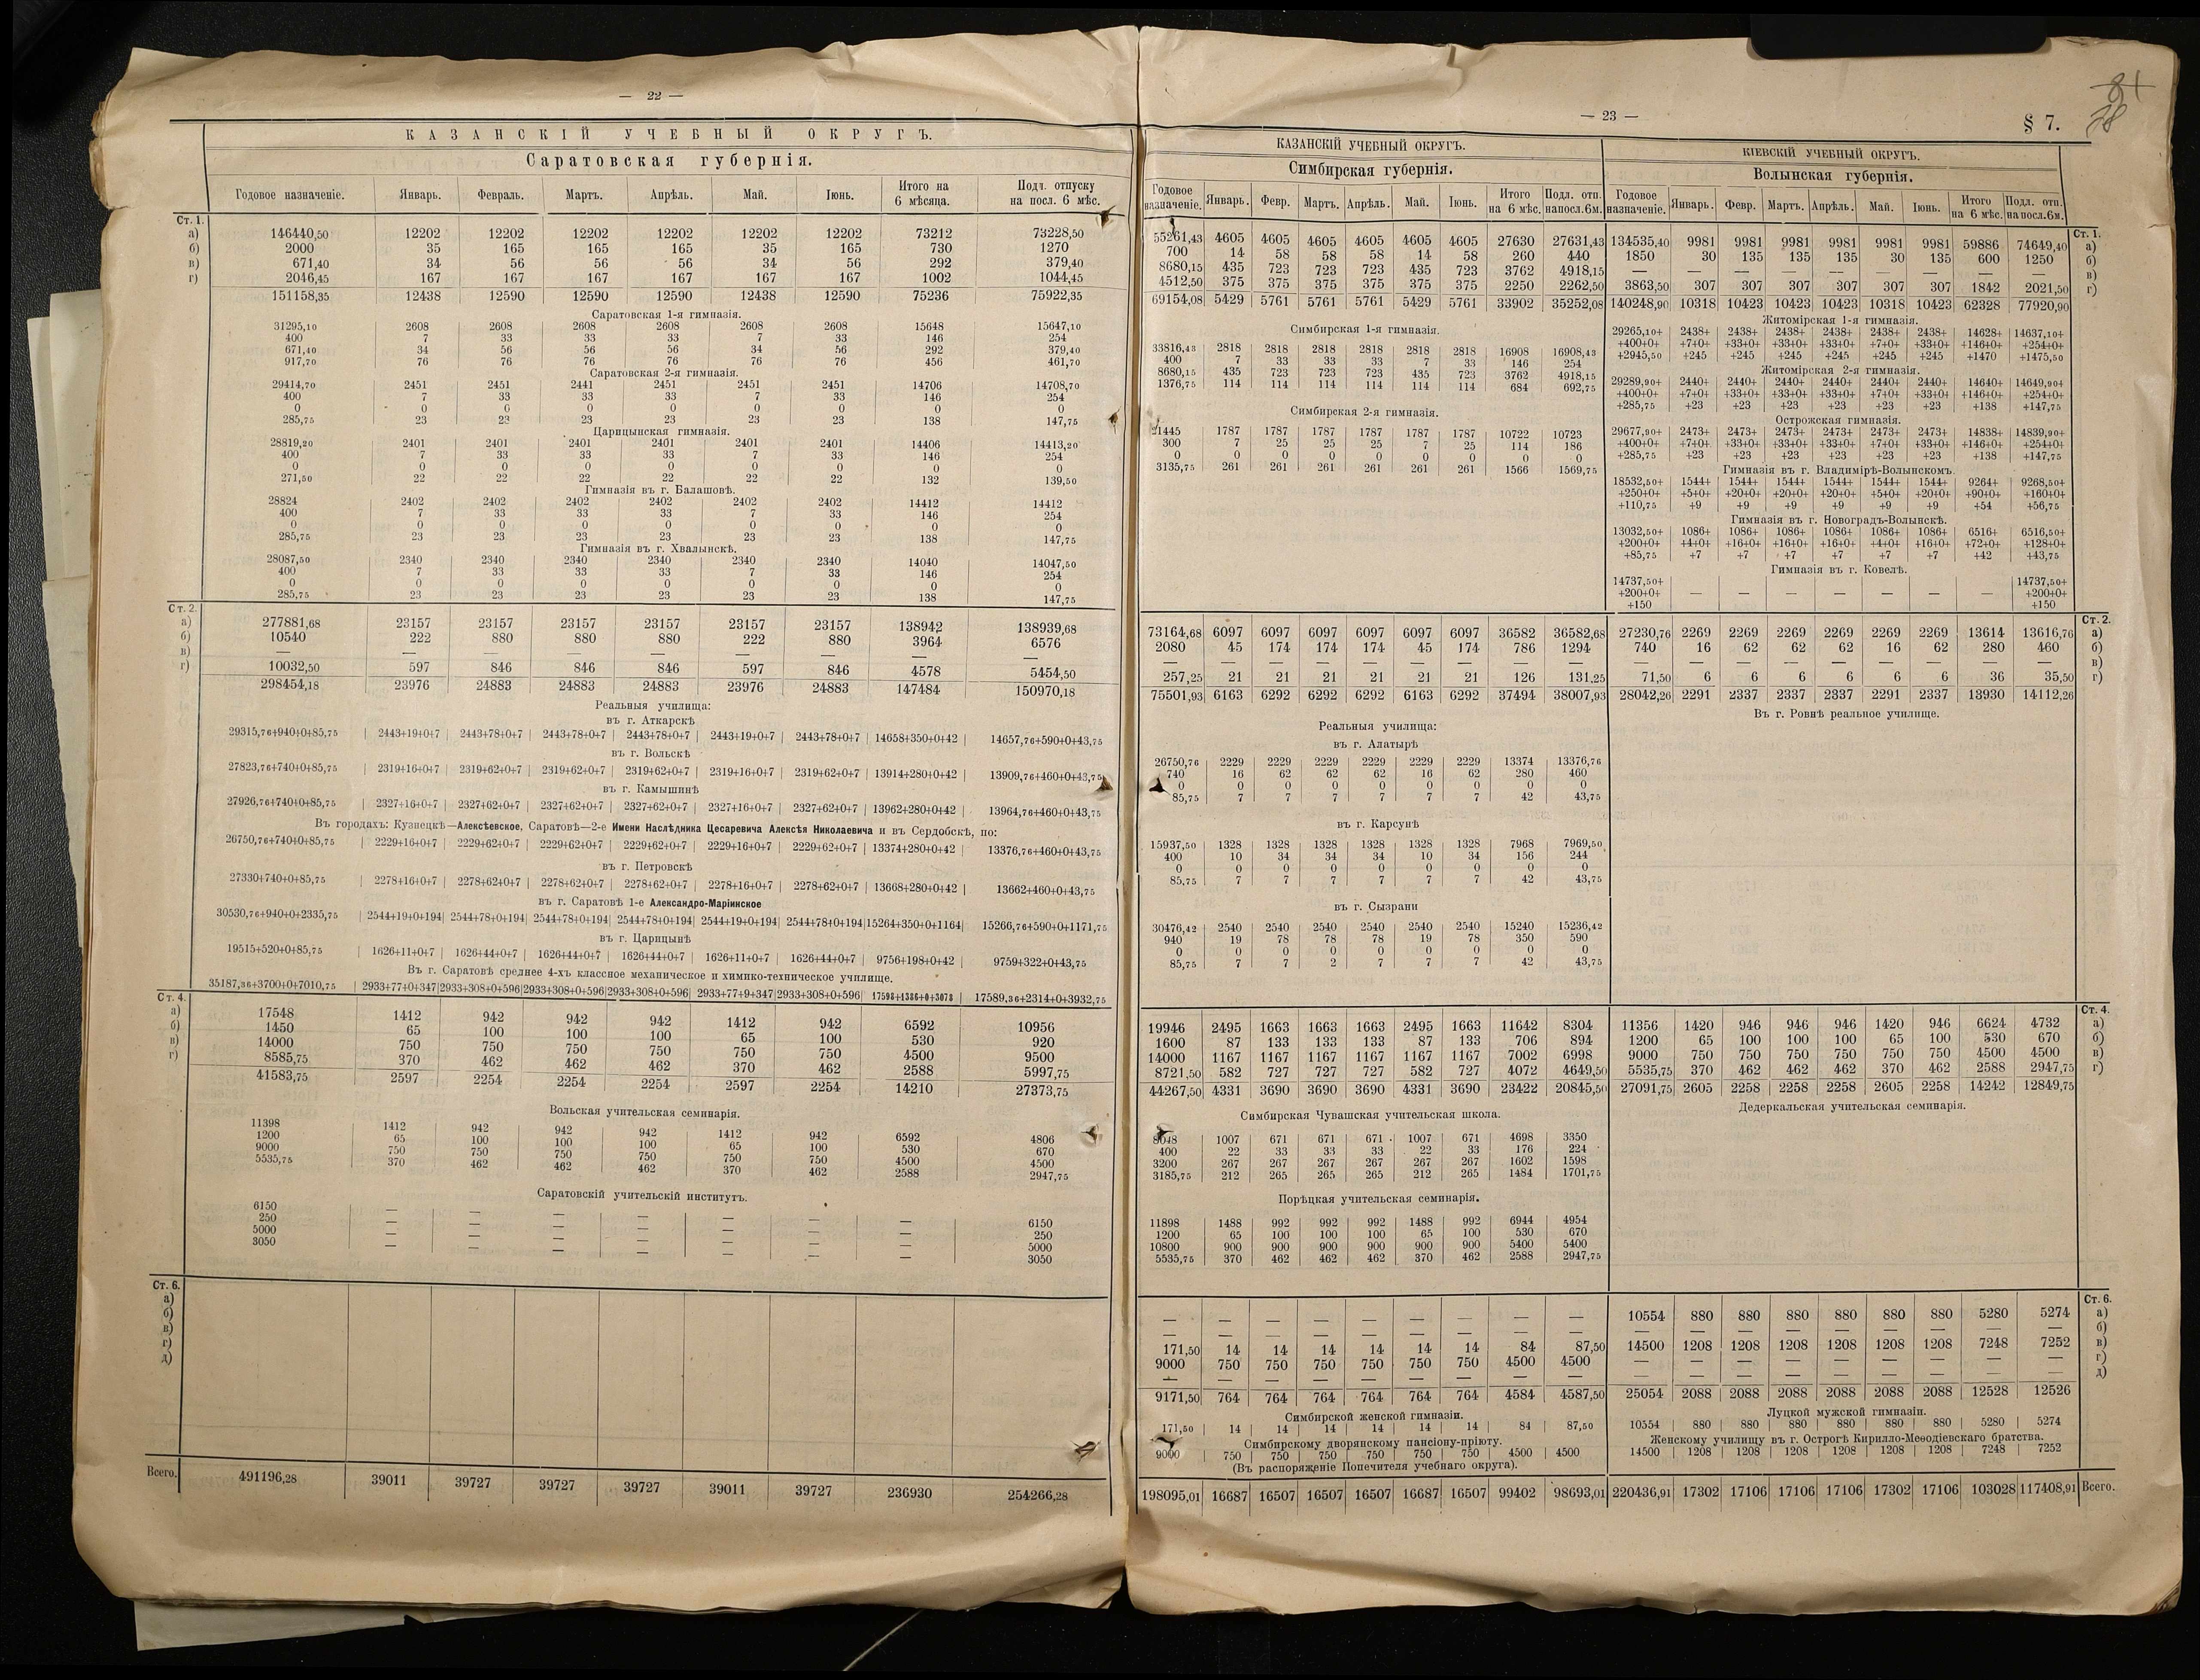 — 22 —
КАЗАНСКІЙ УЧЕБНЫЙ ОКРУГЪ.
Саратовская губернія.
Годовое назначеніе. Январь. Февраль. Мартъ. Апрѣль. Май. Іюнь. Итого на 6 мѣсяца. Подл. отпуску на посл. 6 мѣс.
Ст. 1.
а) 146440,50 12202 12202 12202 12202 12202 12202 73212 73228,50
б) 2000 35 165 165 165 35 165 730 1270
в) 671,40 34 56 56 56 34 56 292 379,40
г) 2046,45 167 167 167 167 167 167 1002 1044,45
151158,35 12438 12590 12590 12590 12438 12590 75236 75922,35
Саратовская 1-я гимназія.
31295,10 2608 2608 2608 2608 2608 2608 15648 15647,10
400 7 33 33 33 7 33 146 254
671,40 34 56 56 56 34 56 292 379,40
917,70 76 76 76 76 76 76 456 461,70
Саратовская 2-я гимназія.
29414,70 2451 2451 2441 2451 2451 2451 14706 14708,70
400 7 33 33 33 7 33 146 254
0 0 0 0 0 0 0 0 0
285,75 23 23 23 23 23 23 138 147,75
Царицынская гимназія.
28819,20 2401 2401 2401 2401 2401 2401 14406 14413,20
400 7 33 33 33 7 33 146 254
0 0 0 0 0 0 0 0 0
271,50 22 22 22 22 22 22 132 139,50
Гимназія въ г. Балашовѣ.
28824 2402 2402 2402 2402 2402 2402 14412 14412
400 7 33 33 33 7 33 146 254
0 0 0 0 0 0 0 0 0
285,75 23 23 23 23 23 23 138 147,75
Гимназія въ г. Хвалынскѣ.
28087,50 2340 2340 2340 2340 2340 2340 14040 14047,50
400 7 33 33 33 7 33 146 254
0 0 0 0 0 0 0 0 0
285,75 23 23 23 23 23 23 138 147,75
Ст. 2.
а) 277881,68 23157 23157 23157 23157 23157 23157 138942 138939,68
б) 10540 222 880 880 880 222 880 3964 6576
в) — — — — — — — — —
г) 10032,50 597 846 846 846 597 846 4578 5454,50
298454,18 23976 24883 24883 24883 23976 24883 147484 150970,18
Реальныя училища:
въ г. Аткарскѣ
29315,76+940+0+85,75 2443+19+0+7 2443+78+0+7 2443+78+0+7 2443+78+0+7 2443+19+0+7 2443+78+0+7 14658+350+0+42 14657,76+590+0+43,75
въ г. Вольскѣ
27823,76+740+0+85,75 2319+16+0+7 2319+62+0+7 2319+62+0+7 2319+62+0+7 2319+16+0+7 2319+62+0+7 13914+280+0+42 13909,76+460+0+43,75
въ г. Камышинѣ
27926,76+740+0+85,75 2327+16+0+7 2327+62+0+7 2327+62+0+7 2327+62+0+7 2327+16+0+7 2327+62+0+7 13962+280+0+42 13964,76+460+0+43,75
Въ городахъ: Кузнецкѣ—Алексѣевское, Саратовѣ—2-е Имени Наслѣдника Цесаревича Алексѣя Николаевича и въ Сердобскѣ, по:
26750,76+740+0+85,75 2229+16+0+7 2229+62+0+7 2229+62+0+7 2229+62+0+7 2229+16+0+7 2229+62+0+7 13374+280+0+42 13376,76+460+0+43,75
въ г. Петровскѣ
27330+740+0+85,75 2278+16+0+7 2278+62+0+7 2278+62+0+7 2278+62+0+7 2278+16+0+7 2278+62+0+7 13668+280+0+42 13662+460+0+43,75
въ г. Саратовѣ 1-е Александро-Маріинское
30530,76+940+0+2335,75 2544+19+0+194 2544+78+0+194 2544+78+0+194 2544+78+0+194 2544+19+0+194 2544+78+0+194 15264+350+0+1164 15266,76+590+0+1171,75
въ г. Царицынѣ
19515+520+0+85,75 1626+11+0+7 1626+44+0+7 1626+44+0+7 1626+44+0+7 1626+11+0+7 1626+44+0+7 9756+198+0+42 9759+322+0+43,75
Въ г. Саратовѣ среднее 4-хъ классное механическое и химико-техническое училище.
35187,36+3700+0+7010,75 2933+77+0+347 2933+308+0+596 2933+308+0+596 2933+308+0+596 2933+77+9+347 2933+308+0+596 17598+1386+0+3078 17589,36+2314+0+3932,75
Ст. 4.
а) 17548 1412 942 942 942 1412 942 6592 10956
б) 1450 65 100 100 100 65 100 530 920
в) 14000 750 750 750 750 750 750 4500 9500
г) 8585,75 370 462 462 462 370 462 2588 5997,75
41583,75 2597 2254 2254 2254 2597 2254 14210 27373,75
Вольская учительская семинарія.
11398 1412 942 942 942 1412 942 6592 4806
1200 65 100 100 100 65 100 530 670
9000 750 750 750 750 750 750 4500 4500
5535,75 370 462 462 462 370 462 2588 2947,75
Саратовскій учительскій институтъ.
6150 — — — — — — — 6150
250 — — — — — — — 250
5000 — — — — — — — 5000
3050 — — — — — — — 3050
Ст. 6.
а)
б)
в)
г)
д)
Всего. 491196,28 39011 39727 39727 39727 39011 39727 236930 254266,28
— 23 —
§ 7.
КАЗАНСКІЙ УЧЕБНЫЙ ОКРУГЪ.
Симбирская губернія.
Годовое назначеніе. Январь. Февр. Мартъ. Апрѣль. Май. Іюнь. Итого на 6 мѣс. Подл. отп. на посл. 6 м.
55261,43 4605 4605 4605 4605 4605 4605 27630 27631,43
700 14 58 58 58 14 58 260 440
8680,15 435 723 723 723 435 723 3762 4918,15
4512,50 375 375 375 375 375 375 2250 2262,50
69154,08 5429 5761 5761 5761 5429 5761 33902 35252,08
Симбирская 1-я гимназія.
33816,43 2818 2818 2818 2818 2818 2818 16908 16908,43
400 7 33 33 33 7 33 146 254
8680,15 435 723 723 723 435 723 3762 4918,15
1376,75 114 114 114 114 114 114 684 692,75
Симбирская 2-я гимназія.
21445 1787 1787 1787 1787 1787 1787 10722 10723
300 7 25 25 25 7 25 114 186
0 0 0 0 0 0 0 0 0
3135,75 261 261 261 261 261 261 1566 1569,75
73164,68 6097 6097 6097 6097 6097 6097 36582 36582,68
2080 45 174 174 174 45 174 786 1294
— — — — — — — — —
257,25 21 21 21 21 21 21 126 131,25
75501,93 6163 6292 6292 6292 6163 6292 37494 38007,93
Реальныя училища:
въ г. Алатырѣ
26750,76 2229 2229 2229 2229 2229 2229 13374 13376,76
740 16 62 62 62 16 62 280 460
0 0 0 0 0 0 0 0 0
85,75 7 7 7 7 7 7 42 43,75
въ г. Карсунѣ
15937,50 1328 1328 1328 1328 1328 1328 7968 7969,50
400 10 34 34 34 10 34 156 244
0 0 0 0 0 0 0 0 0
85,75 7 7 7 7 7 7 42 43,75
въ г. Сызрани
30476,42 2540 2540 2540 2540 2540 2540 15240 15236,42
940 19 78 78 78 19 78 350 590
0 0 0 0 0 0 0 0 0
85,75 7 7 2 7 7 7 42 43,75
19946 2495 1663 1663 1663 2495 1663 11642 8304
1600 87 133 133 133 87 133 706 894
14000 1167 1167 1167 1167 1167 1167 7002 6998
8721,50 582 727 727 727 582 727 4072 4649,50
44267,50 4331 3690 3690 3690 4331 3690 23422 20845,50
Симбирская Чувашская учительская школа.
8048 1007 671 671 671 1007 671 4698 3350
400 22 33 33 33 22 33 176 224
3200 267 267 267 267 267 267 1602 1598
3185,75 212 265 265 265 212 265 1484 1701,75
Порѣцкая учительская семинарія.
11898 1488 992 992 992 1488 992 6944 4954
1200 65 100 100 100 65 100 530 670
10800 900 900 900 900 900 900 5400 5400
5535,75 370 462 462 462 370 462 2588 2947,75
— — — — — — — — —
— — — — — — — — —
171,50 14 14 14 14 14 14 84 87,50
9000 750 750 750 750 750 750 4500 4500
— — — — — — — — —
9171,50 764 764 764 764 764 764 4584 4587,50
Симбирской женской гимназіи.
171,50 14 14 14 14 14 14 84 87,50
Симбирскому дворянскому пансіону-пріюту.
9000 750 750 750 750 750 750 4500 4500
(Въ распоряженіе Попечителя учебнаго округа).
198095,01 16687 16507 16507 16507 16687 16507 99402 98693,01
КІЕВСКІЙ УЧЕБНЫЙ ОКРУГЪ.
Волынская губернія.
Годовое назначеніе. Январь. Февр. Мартъ. Апрѣль. Май. Іюнь. Итого на 6 мѣс. Подл. отп. на посл. 6 м.
Ст. 1.
134535,40 9981 9981 9981 9981 9981 9981 59886 74649,40 а)
1850 30 135 135 135 30 135 600 1250 б)
— — — — — — — — — в)
3863,50 307 307 307 307 307 307 1842 2021,50 г)
140248,90 10318 10423 10423 10423 10318 10423 62328 77920,90
Житомірская 1-я гимназія.
29265,10+ 2438+ 2438+ 2438+ 2438+ 2438+ 2438+ 14628+ 14637,10+
+400+0+ +7+0+ +33+0+ +33+0+ +33+0+ +7+0+ +33+0+ +146+0+ +254+0+
+2945,50 +245 +245 +245 +245 +245 +245 +1470 +1475,50
Житомірская 2-я гимназія.
29289,90+ 2440+ 2440+ 2440+ 2440+ 2440+ 2440+ 14640+ 14649,90+
+400+0+ +7+0+ +33+0+ +33+0+ +33+0+ +7+0+ +33+0+ +146+0+ +254+0+
+285,75 +23 +23 +23 +23 +23 +23 +138 +147,75
Острожская гимназія.
29677,90+ 2473+ 2473+ 2473+ 2473+ 2473+ 2473+ 14838+ 14839,90+
+400+0+ +7+0+ +33+0+ +33+0+ +33+0+ +7+0+ +33+0+ +146+0+ +254+0+
+285,75 +23 +23 +23 +23 +23 +23 +138 +147,75
Гимназія въ г. Владимірѣ-Волынскомъ.
18532,50+ 1544+ 1544+ 1544+ 1544+ 1544+ 1544+ 9264+ 9268,50+
+250+0+ +5+0+ +20+0+ +20+0+ +20+0+ +5+0+ +20+0+ +90+0+ +160+0+
+110,75 +9 +9 +9 +9 +9 +9 +54 +56,75
Гимназія въ г. Новоградъ-Волынскѣ.
13032,50+ 1086+ 1086+ 1086+ 1086+ 1086+ 1086+ 6516+ 6516,50+
+200+0+ +4+0+ +16+0+ +16+0+ +16+0+ +4+0+ +16+0+ +72+0+ +128+0+
+85,75 +7 +7 +7 +7 +7 +7 +42 +43,75
Гимназія въ г. Ковелѣ.
14737,50+ 14737,50+
+200+0+ — — — — — — — +200+0+
+150 +150
Ст. 2.
27230,76 2269 2269 2269 2269 2269 2269 13614 13616,76 а)
740 16 62 62 62 16 62 280 460 б)
— — — — — — — — — в)
71,50 6 6 6 6 6 6 36 35,50 г)
28042,26 2291 2337 2337 2337 2291 2337 13930 14112,26
Въ г. Ровнѣ реальное училище.
Ст. 4.
11356 1420 946 946 946 1420 946 6624 4732 а)
1200 65 100 100 100 65 100 530 670 б)
9000 750 750 750 750 750 750 4500 4500 в)
5535,75 370 462 462 462 370 462 2588 2947,75 г)
27091,75 2605 2258 2258 2258 2605 2258 14242 12849,75
Дедеркальская учительская семинарія.
Ст. 6.
10554 880 880 880 880 880 880 5280 5274 а)
— — — — — — — — — б)
14500 1208 1208 1208 1208 1208 1208 7248 7252 в)
— — — — — — — — — г)
д)
25054 2088 2088 2088 2088 2088 2088 12528 12526
Луцкой мужской гимназіи.
10554 880 880 880 880 880 880 5280 5274
Женскому училищу въ г. Острогѣ Кирилло-Меѳодіевскаго братства.
14500 1208 1208 1208 1208 1208 1208 7248 7252
220436,91 17302 17106 17106 17106 17302 17106 103028 117408,91 Всего.